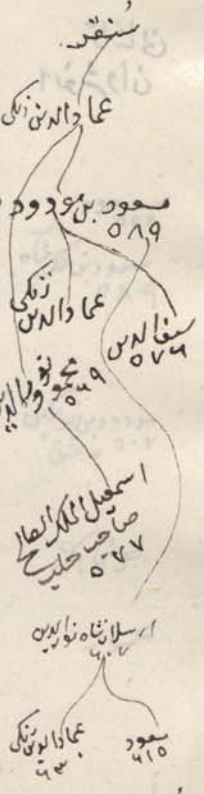 سُنقر
عماد الدين زنكي
مسعود بن مودود
٥٨٩
عماد الدين زنكي
سيف الدين
٥٧٦
نور الدين محمود
٥٦٩
اسمعيل الملك الصالح
صاحب حلب
٥٧٧
ارسلان شاه نور الدين
٦٠٧
مسعود
٦١٥
عماد الدين زنكي
٦٣٠